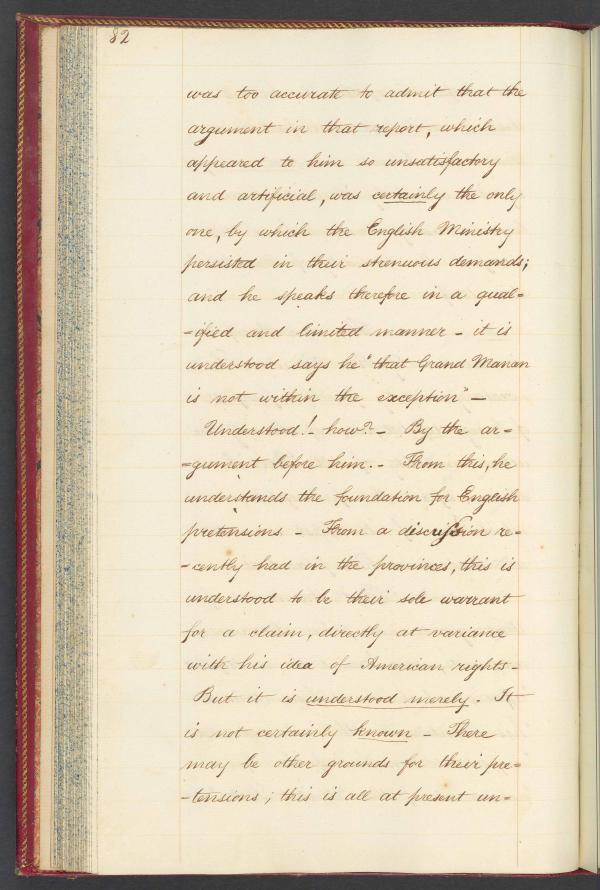 82
was too accurate to admit that the
argument in that report, which
appeared to him so unsatisfactory
and artificial, was certainly the only
one, by which the English Ministry
persisted in their strenuous demands;
and he speaks therefore in a qual=
=ified and limited manner - it is
understood says he "that Grand Manan
is not within the exception" -
Understood! - how? - By the ar=
=gument before him. - From this, he
understands the foundation for English
pretensions - From a discussion re=
=cently had in the provinces, this is
understood to be their sole warrant
for a claim, directly at variance
with his idea of American rights -
But it is understood merely. It
is not certainly known - There
may be other grounds for their pre=
=tensions; this is all at present un=